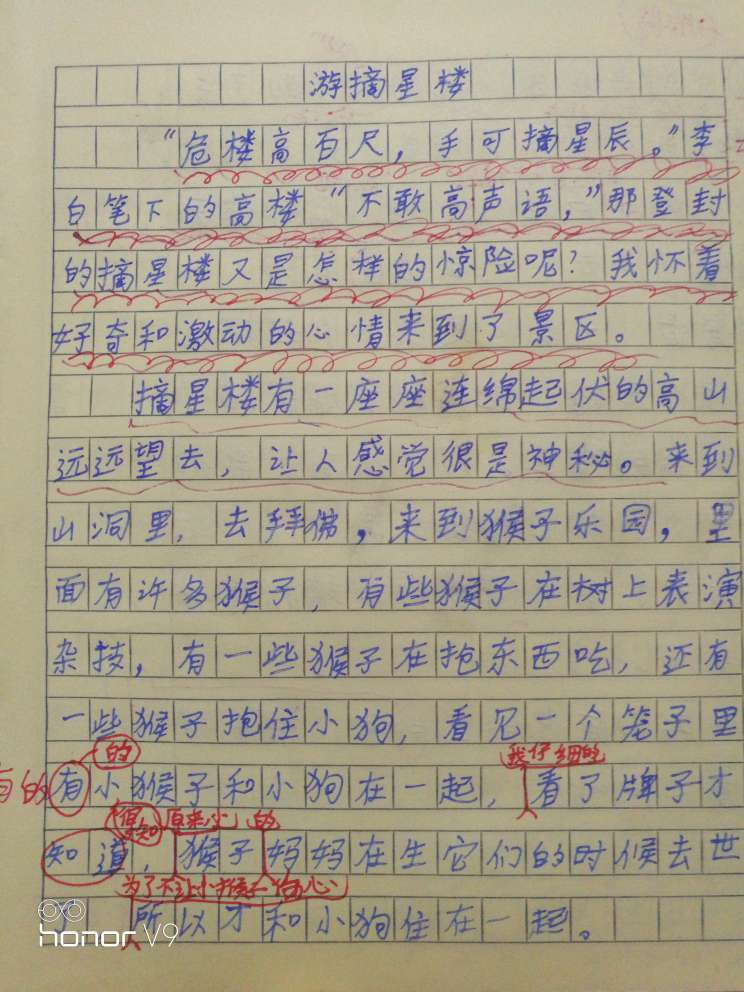 游摘星楼
“危楼高百尺，手可摘星辰。”李
白笔下的高楼“不敢高声语，”那登封
的摘星楼又是怎样的惊险呢？我怀着
好奇和激动的心情来到了景区。
摘星楼有一座座连绵起伏的高山
远远望去，让人感觉很是神秘。来到
山洞里，去拜佛，来到猴子乐园，里
面有许多猴子，有些猴子在树上表演
杂技，有一些猴子在抢东西吃，还有
一些猴子抱住小狗，看见一个笼子里
的
我仔细的
有的
有小猴子和小狗在一起，看了牌子才
得知
原来小
的
知道，猴子妈妈在生它们的时候去世
为了不让小猴子伤心
了 所以才和小狗住在一起。
honor V9